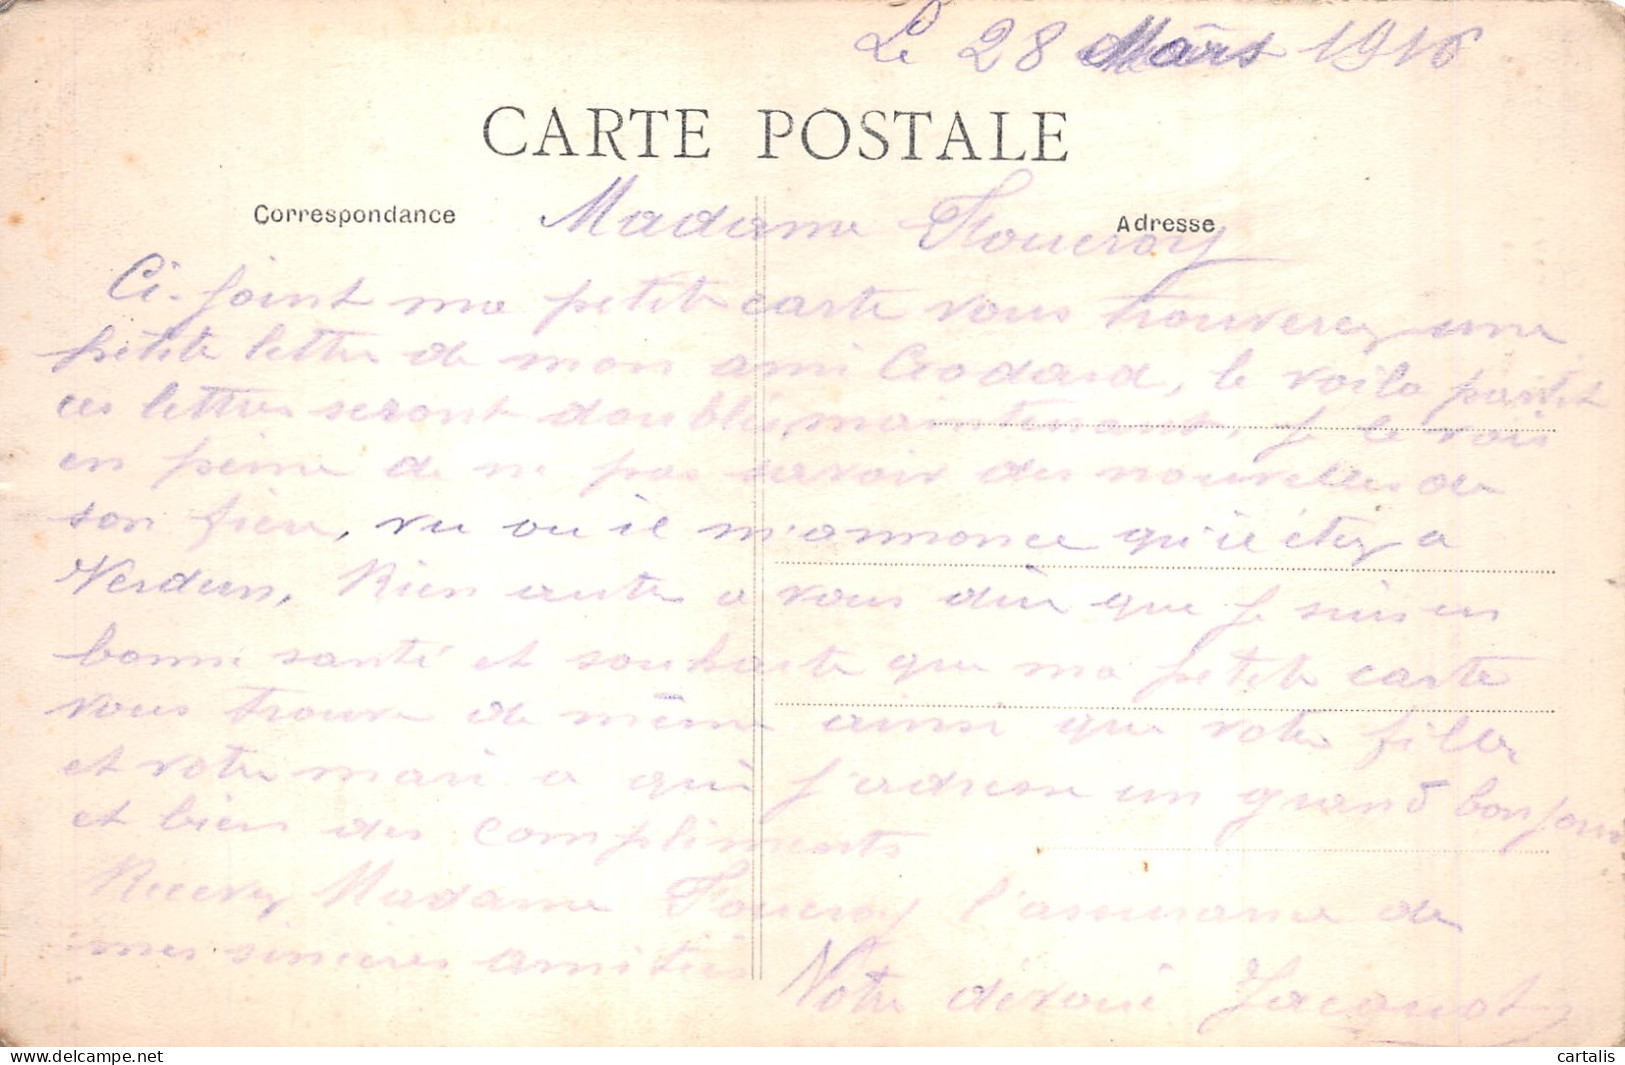 Le 28 Mars 1916
CARTE POSTALE
Correspondance
Adresse
Madame Foucroy
Ci-joint ma petite carte vous trouverez une
petite lettre de mon ami Godard, le voila partit
ces lettres seront doublés maintenant, Je le vois
en peine de ne pas savoir des nouvelles de
son frère, vu ou il m'annonce qu'il étez a
Verdun, Rien autre a vous dire que Je suis en
bonne santé et souhaite que ma petite carte
vous trouve de même ainsi que votre fille
et votre mari a qui J'adresse un grand bonjour
et bien des compliments
Recevez Madame Foucroy l'assurance de
mes sincères amitiés
Votre dévoué Jacquot
delcampe.net
cartalis